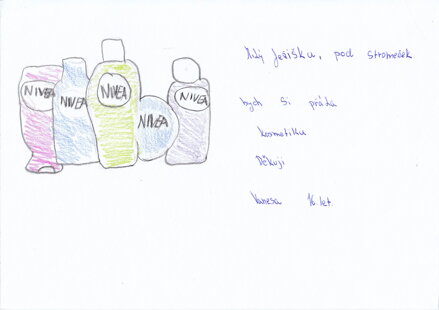 NIVEA
NIVEA
NIVEA
NIVEA
NIVEA
Milý Ježíšku, pod stromeček
bych si přála
kosmetiku
Děkuji
Vanesa 16 let